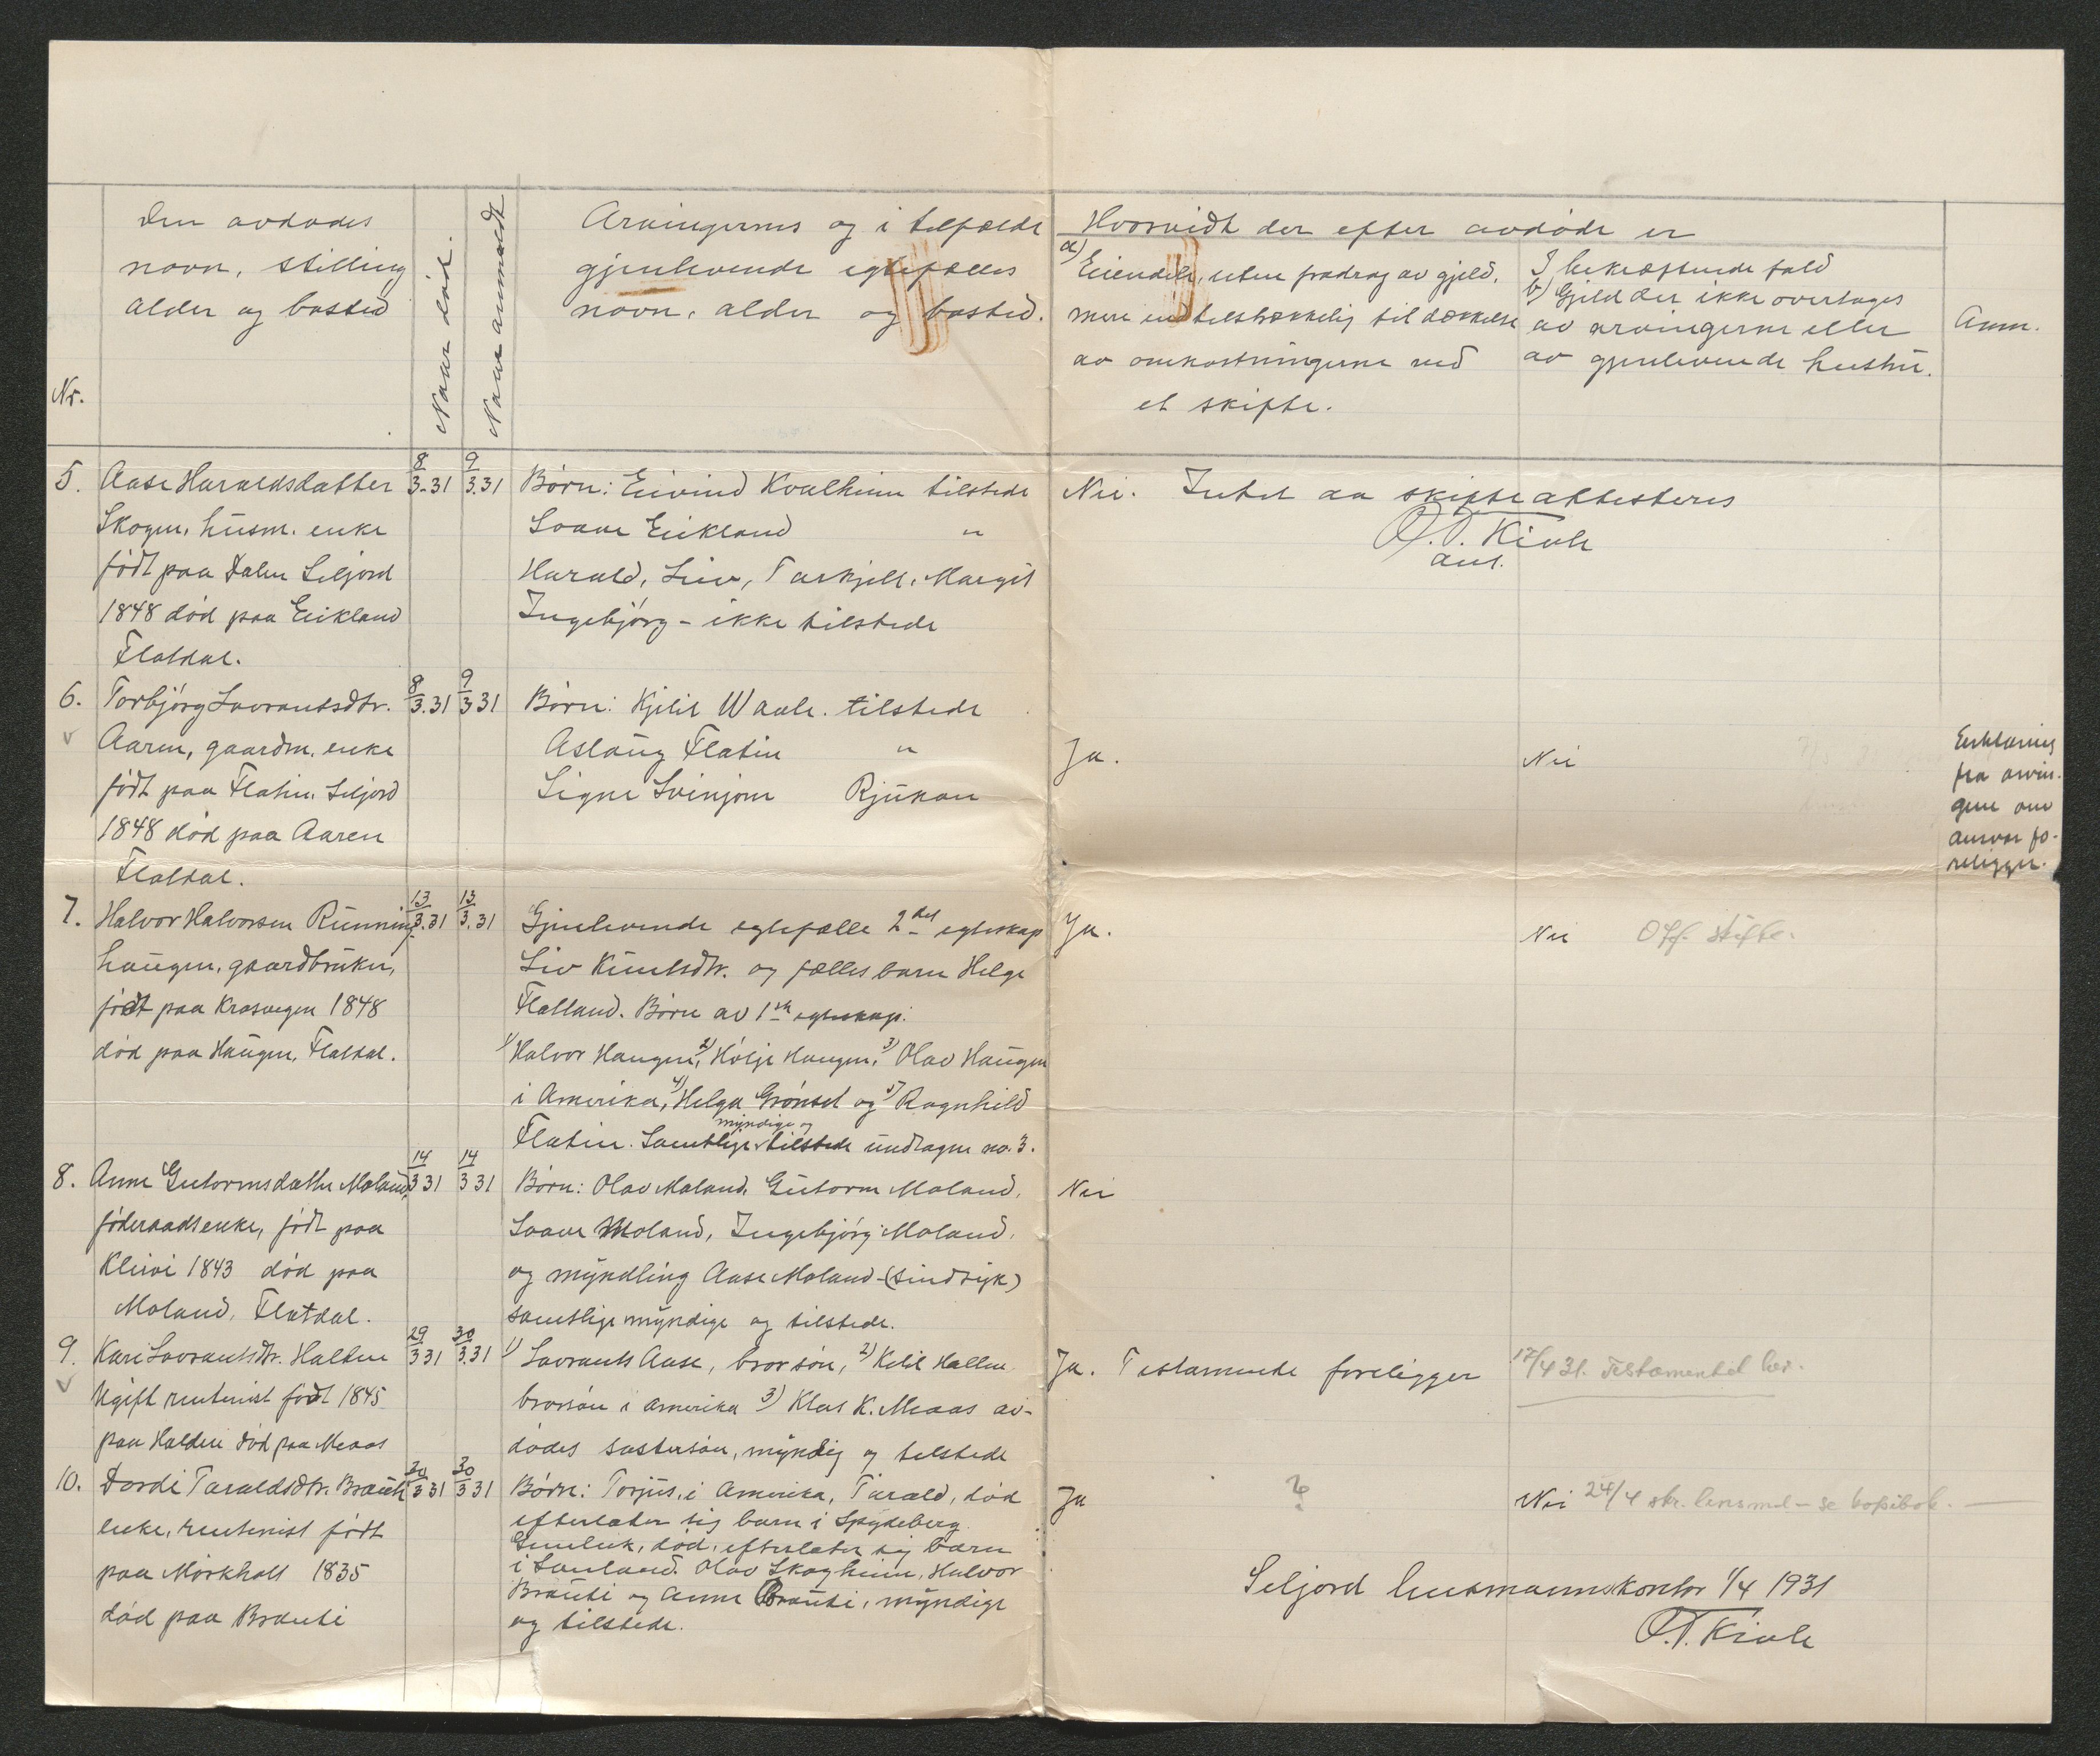 Den avdødes
navn, stilling
alder og bosted
Naar død.
Naar anmeldt
Arvingernes og i tilfælde
gjenlevende egtefælles
navn, alder og bosted.
Hvorvidt der efter avdøde er
a) Eiendele, uten fradrag av gjeld,
mere end tilstrækkelig til dækkelse
av omkostningerne ved
et skifte.
I bekræftende fald
b) Gjeld der ikke overtages
av arvingerne eller
av gjenlevende hustru.
Anm.
Nr.
5. Aase Haraldsdatter 8/3-31 9/3.31
Skogen, husm. enke
født paa Dalen Seljord
1848 død paa Eikland
Flatdal.
Børn: Eivind Kvalheim tilstede
Svave Eikland "
Harald, Liv, Tarkjell, Margit
Ingebjørg - ikke tilstede
Nei. Intet aa skifte attesteres
O.T. Kivle
anl.
6. Torbjørg Lavrantsdtr. 8/3.31 9/3 31
v Aaren, gaardm. enke
født paa Flatin, Seljord
1848 død paa Aaren
Flatdal.
Børn: Kjetil Waale. tilstede
Aslaug Flatin "
Signe Svinjom Rjukan
Ja. Nei
Erklæring
fra arvin-
gene om
ansvar fo-
religger.
7. Halvor Halvorsen Running- 13/3.31 13/3.31
haugen, gaardbruker,
født paa Krosvegen 1848
død paa Haugen, Flatdal.
Gjenlevende egtefælle 2det egteskap
Liv Knutsdtr. og fælles barn Helge
Flatland. Børn av 1ste egteskap:
1) Halvor Haugen, 2) Hølje Haugen, 3) Olav Haugen
i Amerika, 4) Helga Grønset og 5) Ragnhild
myndige og
Flatin. Samtlige tilstede undtagen no. 3.
Ja. Nei Off. skifte.
8. Anne Gutormsdatter Moland, 14/3 31 14/3 31
føderaadsenke, født paa
Kleivi 1843 død paa
Moland, Flatdal.
Børn: Olav Moland, Gutorm Moland,
Svave Moland, Ingebjørg Moland,
og myndling Aase Moland - (sindsyk)
samtlige myndige og tilstede.
Nei
9. Kari Lavrantsdtr. Halden 29/3 31 30/3.31
v Ugift rentenist født 1845
paa Halden død paa Meaas
1) Lavrants Aase, brorsøn, 2) Ketil Hallen
brorsøn i Amerika 3) Klas K. Meaas av-
dødes søstersøn, myndig og tilstede
Ja. Testamente foreligger 17/4 31. Testamentet her.
10. Dordi Taraldsdtr. Brauti 30/3 31 30/3 31
enke, rentenist født
paa Mørkhøll 1835
død paa Brauti
Børn: Torjus, i Amerika, Tarald, død
efterlater sig barn i Spydeberg.
Gunleik, død, efterlater sig barn
i Sauland. Olav Skogheim, Halvor
Brauti og Anne Brauti, myndige
og tilstede.
Ja ? Nei 24/4 skr. lensmd - se kopibok. —
Seljord lensmannskontor 1/4 1931
O.T. Kivle